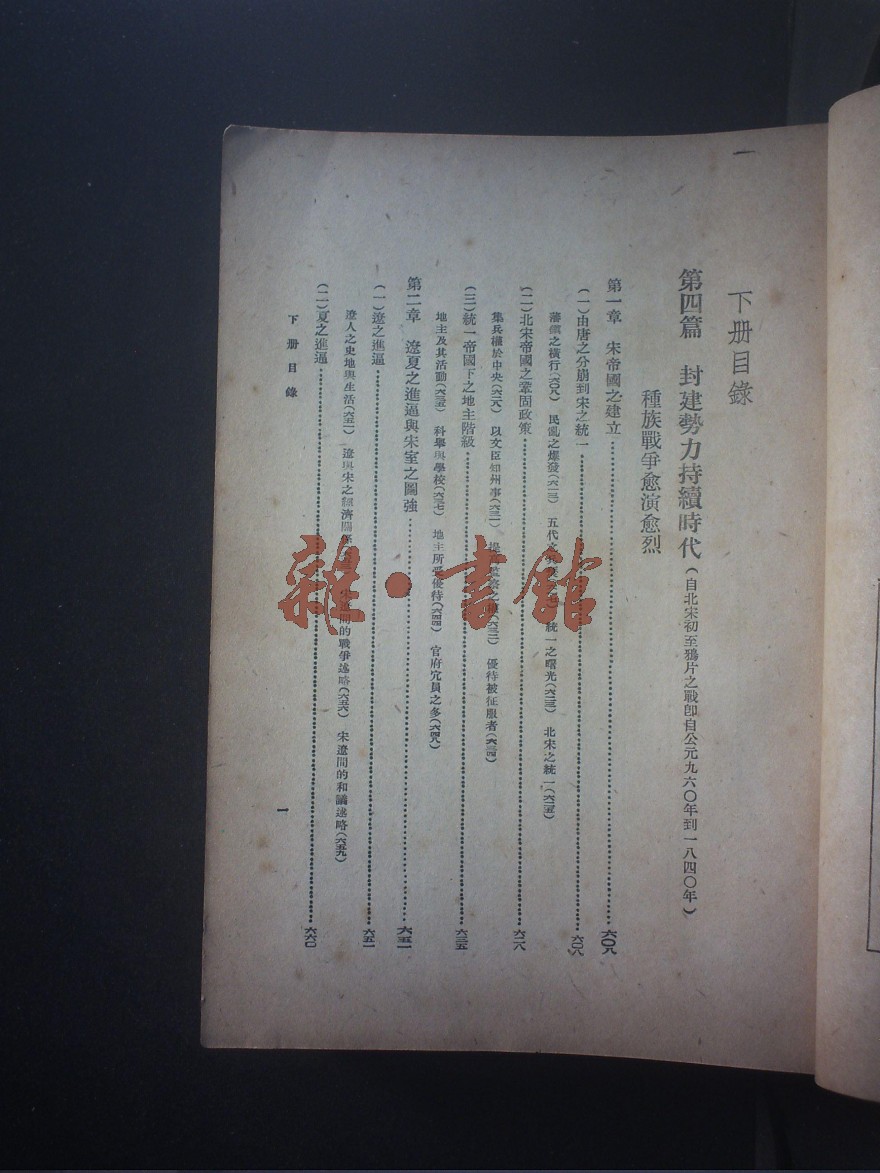 下册目錄
第四篇 封建勢力持續時代（自北宋初至鴉片之戰卽自公元九六〇年到一八四〇年）
種族戰爭愈演愈烈
第一章 宋帝國之建立……六〇八
（一）由唐之分崩到宋之統一……六〇八
藩鎭之橫行（六〇八） 民亂之爆發（六一三） 五代 統一之曙光（六二三） 北宋之統一（六二五）
（二）北宋帝國之鞏固政策……六二八
集兵權於中央（六二八） 以文臣知州事（六三一） 優待被征服者（六三四）
（三）統一帝國下之地主階級……六三五
地主及其活動（六三五） 科舉與學校（六三七） 地主所受優待（六四四） 官府冗員之多（六四八）
第二章 遼夏之進逼與宋室之圖強……六五一
（一）遼之進逼……六五一
遼人之史地與生活（六五一） 遼與宋之經濟關係 宋遼間的戰爭述略（六五六） 宋遼間的和議述略（六五九）
（二）夏之進逼……六六〇
下册目錄
一
雜·書館